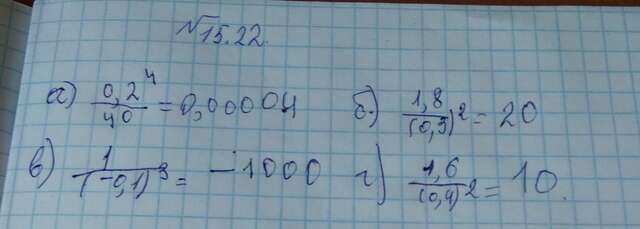 №15.22.
а) 0,2⁴/40 = 0,00004 б) 1,8/(0,3)² = 20
в) 1/(-0,1)³ = -1000 г) 1,6/(0,4)² = 10.